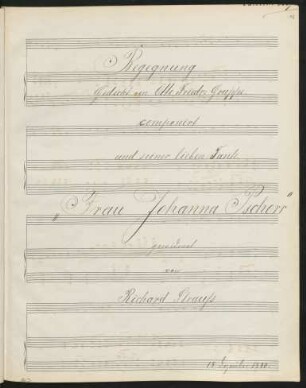 Begegnung
Gedicht von Otto Friedr. Gruppe
componirt
und seiner lieben Tante
"Frau Johanna Pschorr"
gewidmet
von
Richard Strauss
18 1880.